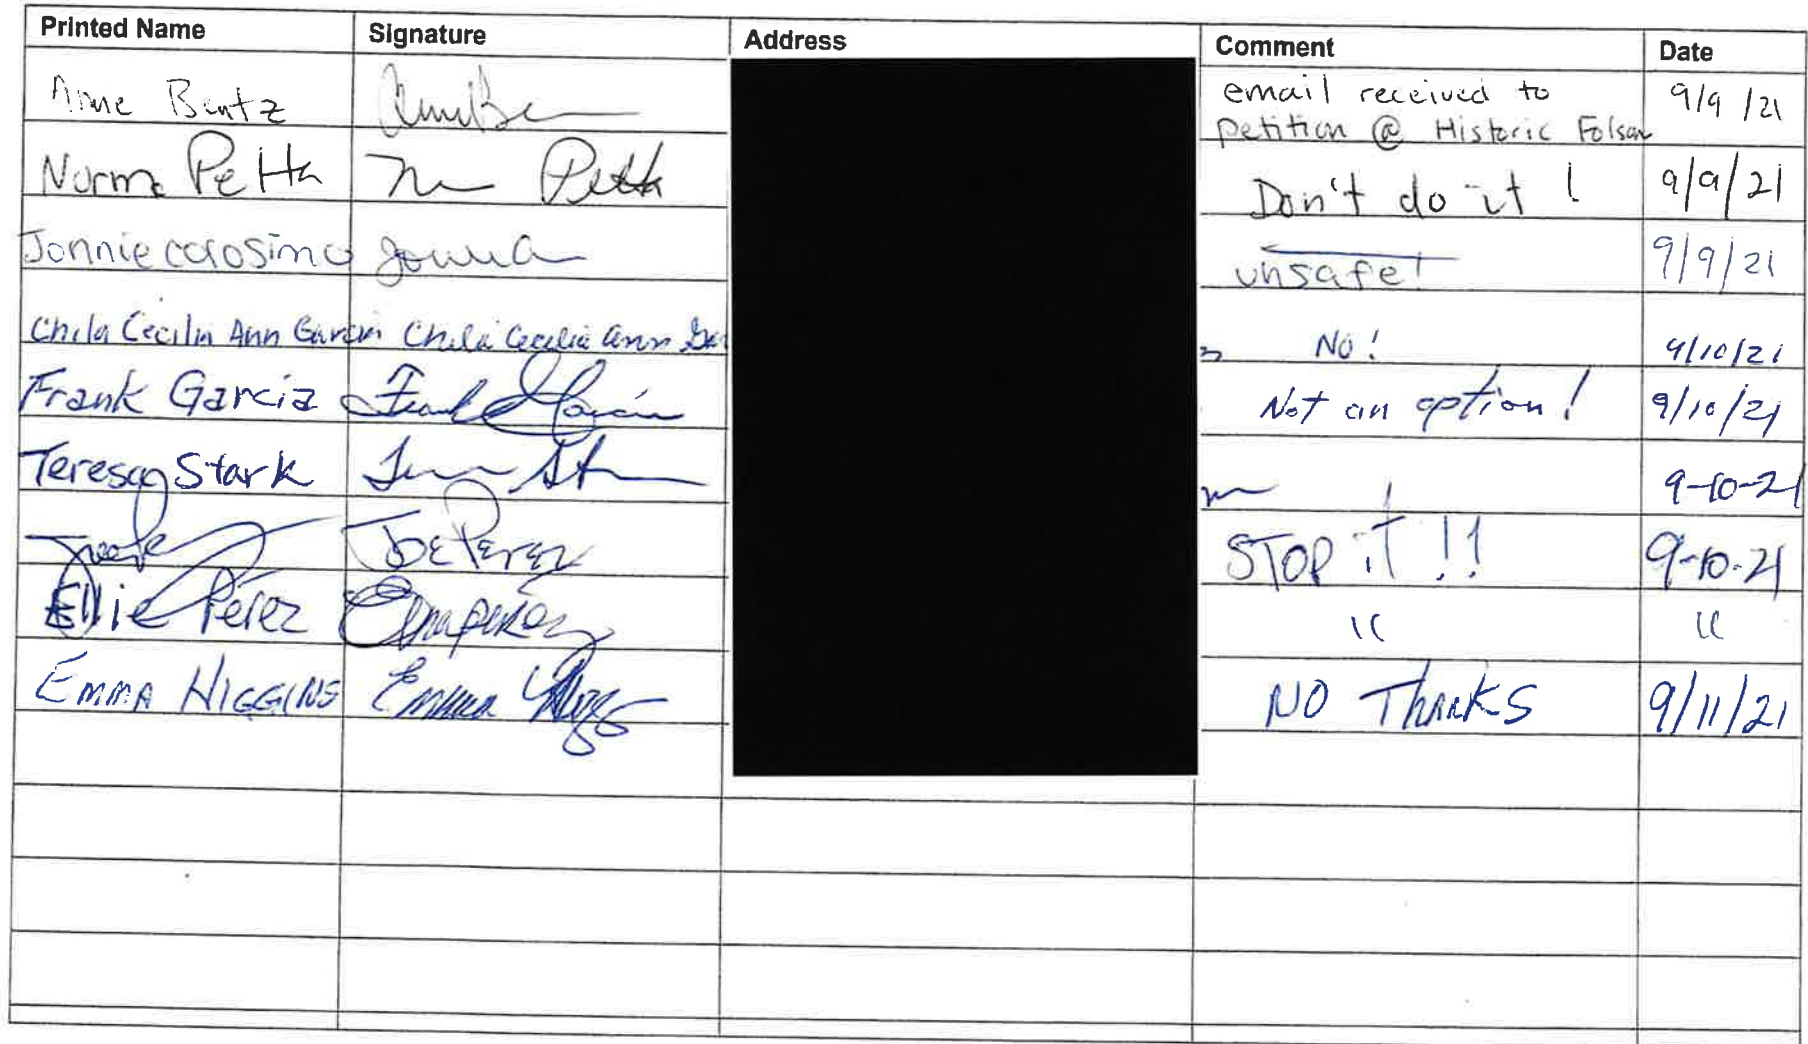 Printed Name Signature Address Comment Date
Anne Bentz email received to 9/9/21
petition @ Historic Folsom
Norma Petta Petta Don't do it! 9/9/21
Jonnie colosimo unsafe! 9/9/21
Chila Cecilia Ann Garcia Chila Cecilia Ann NO! 9/10/21
Frank Garcia Frank Garcia Not an option! 9/10/21
Teresa Stark 9-10-21
Joe Perez STOP it!! 9-10-21
Ellie Perez " "
EMMA HIGGINS Emma NO THANKS 9/11/21